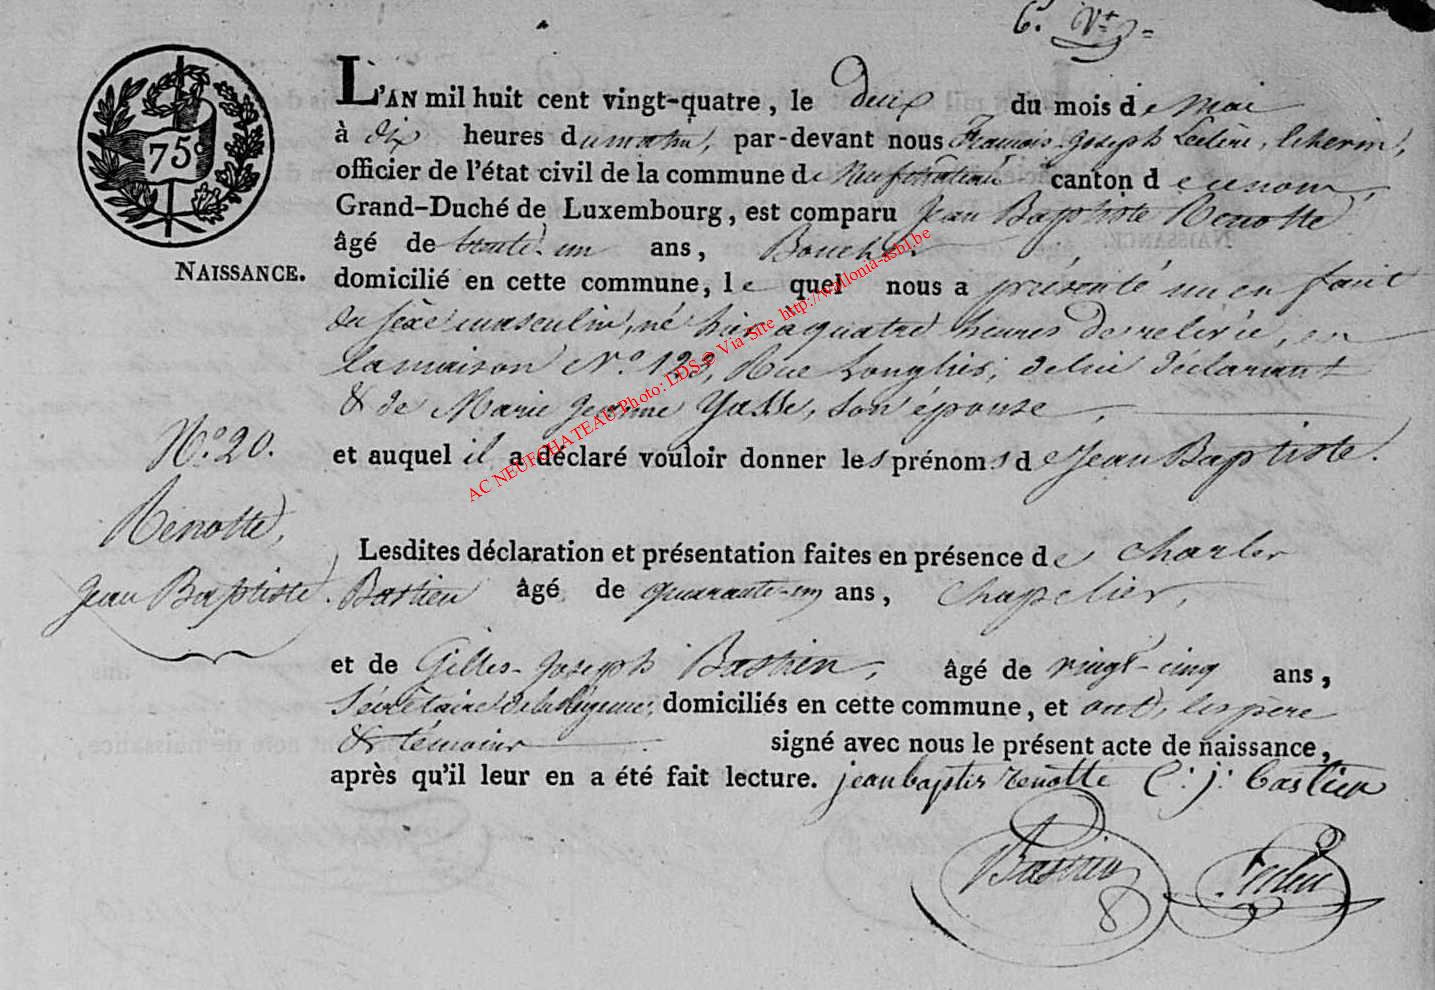 6. Vt
75c
NAISSANCE.
L'AN mil huit cent vingt-quatre, le deux du mois de Mai
à dix heures du matin, par-devant nous François-Joseph Leclerc, Echevin,
officier de l'état civil de la commune de Neufchateau canton d ce nom,
Grand-Duché de Luxembourg, est comparu Jean Baptiste Renotte
âgé de trente-un ans, Boucher
domicilié en cette commune, le quel nous a présenté un enfant
du sexe masculin, né hier a quatre heures de relevée, en
la maison No. 123, Rue Longlier, de lui déclarant
& de Marie Jeanne Yasse, son épouse,
et auquel il a déclaré vouloir donner les prénoms de Jean Baptiste.
No. 20.
Renotte,
Jean Baptiste.
Lesdites déclaration et présentation faites en présence de Charles
Bastien âgé de quarante-un ans, Chapelier,
et de Gilles-Joseph Bastien, âgé de vingt-cinq ans,
Sécrétaire de la Régence, domiciliés en cette commune, et ont, les père
& témoins signé avec nous le présent acte de naissance,
après qu'il leur en a été fait lecture. jean baptis renotte C: j: bastien
Bastien
AC NEUFCHATEAU Photo: LDS-P Via Site http://wallonia-asbl.be